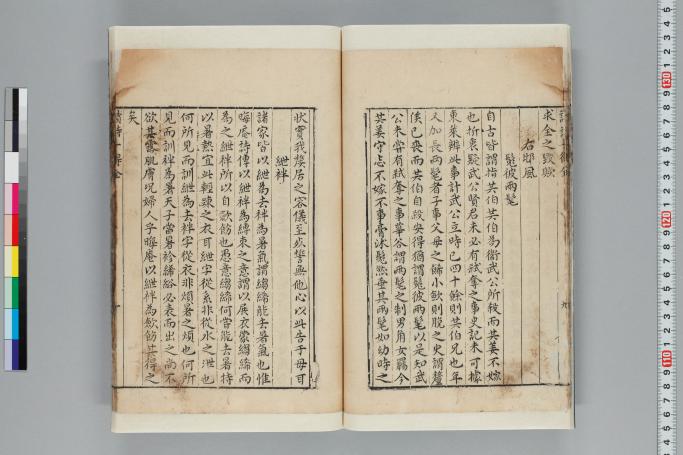 求全之毀歟
右鄘風
髧彼兩髦
自古皆謂指共伯共伯爲衛武公所殺而共姜不嫁
也折衷疑武公賢君未必有弑奪之事史記未可據
東萊辨此事計武公立時已四十餘則共伯兄也年
又加長兩髦者子事父母之飾小歛則脫之史謂釐
侯已喪而共伯自殺安得猶謂髧彼兩髦以是知武
公未嘗有弑奪之事窃谷謂兩髦之制男角女羈今
共姜守志不嫁不事膏沐髧然垂其兩髦如幼時之
狀實我媄居之容儀至死誓無他心以此告于母可
紲袢
諸家皆以紲爲去袢爲暑氣謂縐絺能去暑氣也惟
晦庵詩傳以紲袢爲縛束之意謂以展衣蒙縐絺而
爲之紲袢所以自歛飭也愚意縐絺何嘗能去暑特
以暑熱宜此輕疎之衣耳紲字從糸非從水之泄也
何所見而訓紲爲去袢字從衣非煩暑之煩也何所
見而訓袢爲暑天子當暑袗絺綌必表而出之尚不
欲其露肌膚况婦人乎晦庵以紲袢爲歛飭其得之
矣